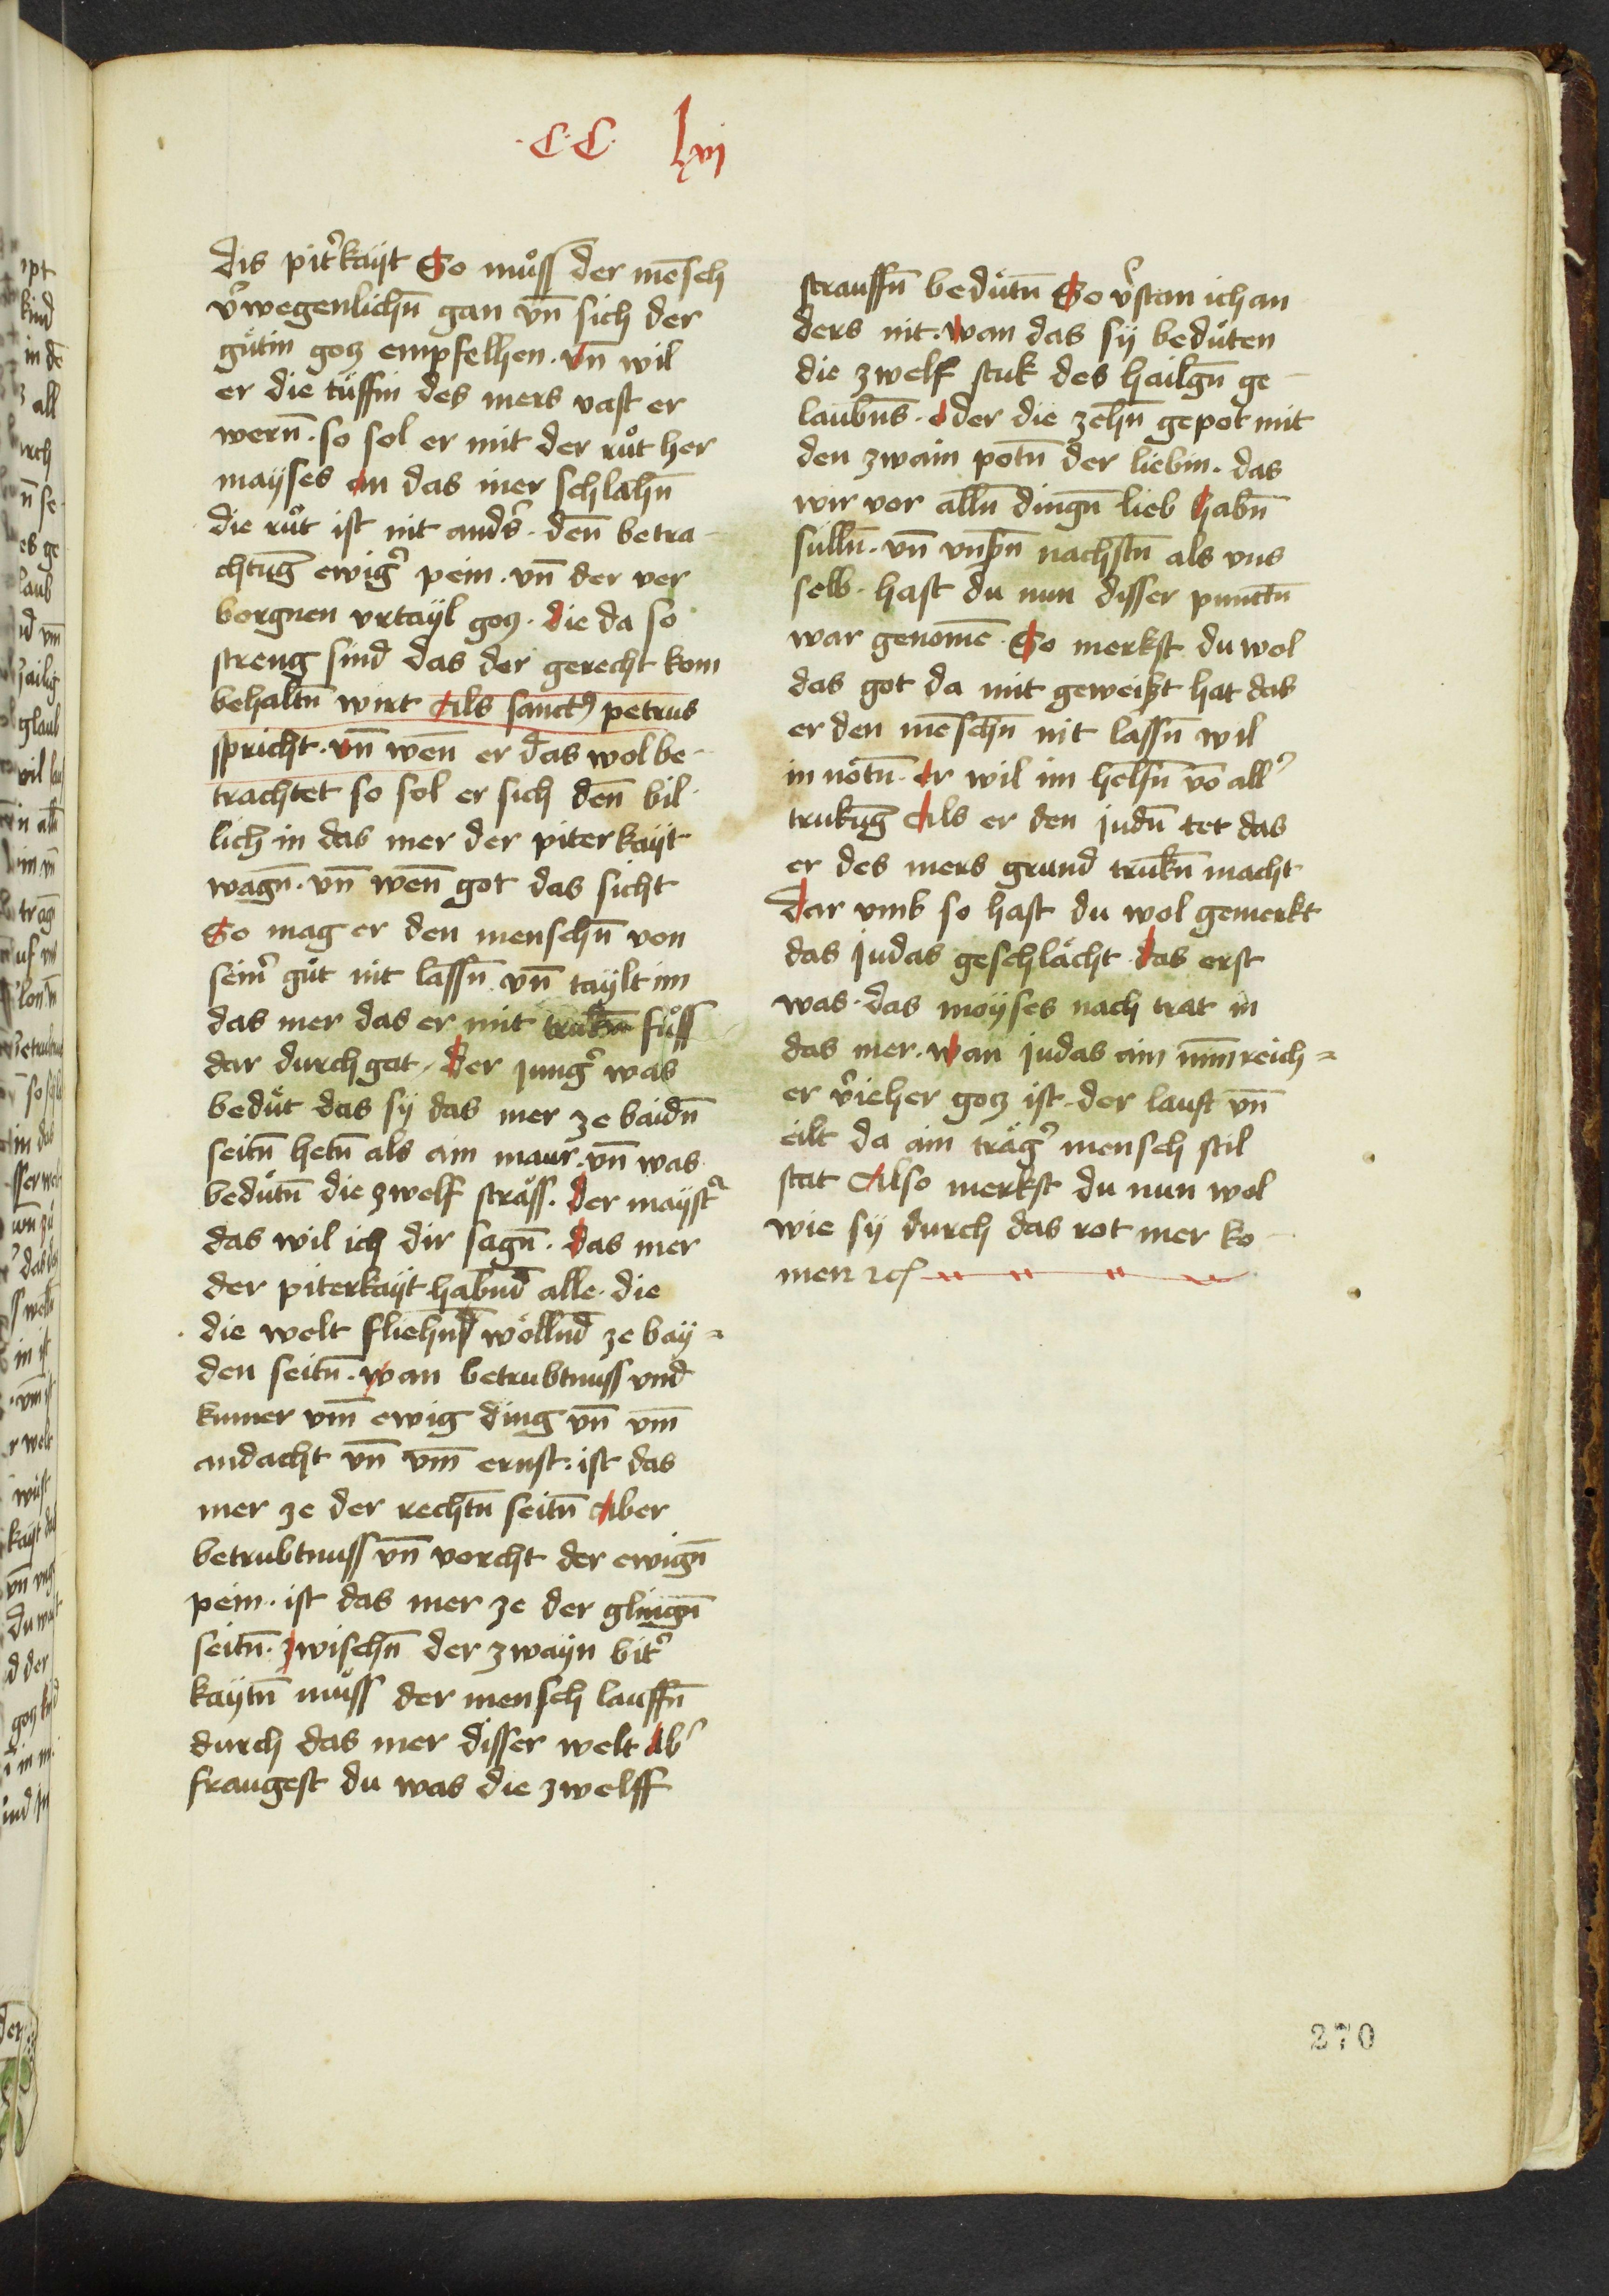 ·C·C· lxvj
dis pit᷑kaÿt So můſſ der mēſch
v᷑wegenlichn̄ gan vn̄ ſich der
gu̍tin gocz empfelhen · vn̄ wil
er die tu̍ffin des mers vaſt er
wern̄ · ſo ſol er mit der růt her
mayſes an das mer ſchlahn̄
die růt iſt nit and᷑s · den̄ betra-
chtūg ewig᷑ pein · vn̄ der ver
borgnen vrtayl gocz · die da ſo
ſtreng ſind das der gerecht kom
behaltn̄ wirt Als ſanctꝰ petrus
ſpricht · vn̄ wen̄ er das wol be-
trachtet ſo ſol er ſich den̄ bil-
lich in das mer der piterkaÿt
wagn̄ · vn̄ wen̄ got das ſicht
So mag er den menſchn̄ von
ſein᷑ gu̍t nit laſſn̄ vn̄ taÿlt im
das mer das er mit trukn̄ fůſſ
dar durch gat · der jung᷑ was
bedu̍t das ſÿ das mer ze baidn̄
ſeitn̄ hetn̄ als ain maur · vn̄ was
bedu̍tn̄ die zwelf ſtra̍ſſ · der mayſt᷑
das wil ich dir ſagn̄ · das mer
der piterkaÿt habnd̄ alle · die
die welt fliehnd̄ wo̍llnd̄ ze bay=
den ſeitn̄ · wan betrubtnuſſ vnd
kumer vm̄ ewig ding vn̄ vm̄
andacht vn̄ vm̄ ernſt · iſt das
mer ze der rechtn̄ ſeitn̄ Aber
betrubtnuſſ vn̄ vorcht der ewign̄
pein · iſt das mer ze der glingn̄
ſeitn̄ · zwiſchn̄ der zwaÿn bit᷑
kaÿtn̄ můſſ der menſch lauffn̄
durch das mer diſſer welt Ab᷑
fraugeſt du was die zwelff
ſtrauſſn̄ bedu̍tn̄ So v᷑ſtan ich an
ders nit · wan das ſÿ bedu̍ten
die zwelf ſtuk des hailgn̄ ge-
laubn̄s · oder die zehn̄ gepot mit
den zwain potn̄ der liebin · das
wir vor alln̄ dingn̄ lieb habn̄
ſu̍lln̄ · vn̄ vnſ᷑n nachſtn̄ als vns
ſelb · haſt du nun diſſer punctn̄
war genomē · So merkſt du wol
das got da mit geweiſzt hat das
er den mēſchn̄ nit laſſn̄ wil
in no̍tn̄ · er wil im helfn̄ vō all᷑
trukūg Als er den judn̄ tet das
er des mers grund trukn̄ macht
Dar vmb ſo haſt du wol gemerkt
das judas geſchla̍cht das erſt
was · das moÿſes nach trat in
das mer · wan judas ain miñreich=
er v᷑ieher gocz iſt · der lauft vn̄
eilt da ain tra̍g᷑ menſch ſtil
ſtat Alſo merkſt du nun wol
wie ſÿ durch das rot mer ko-
men ꝛcꝭ
270